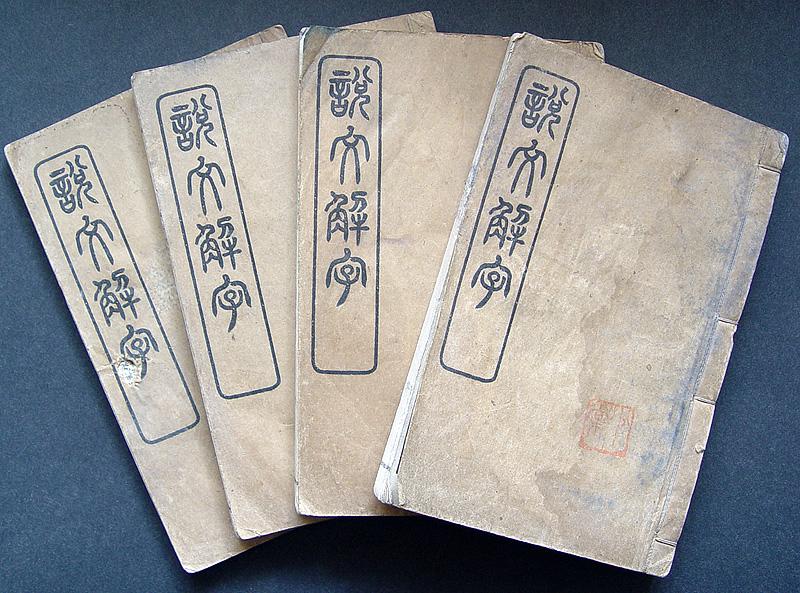 說文解字
說文解字
說文解字
說文解字